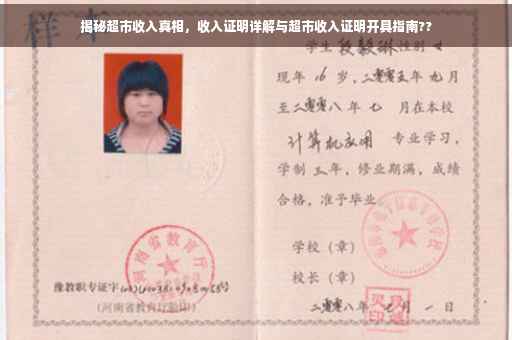 揭秘超市收入真相，收入证明详解与超市收入证明开具指南??
样本
学生段毅琳性别
现年16岁，二零零五年九月
至二零零八年七 月在本校
计算机应用 专业学习，
学制三年，修业期满，成绩
合格，准予毕业。
学校（章）
校长（章）
二零零八年七月一日
河南省教育厅
豫教职专证字
（河南省教育厅验印）